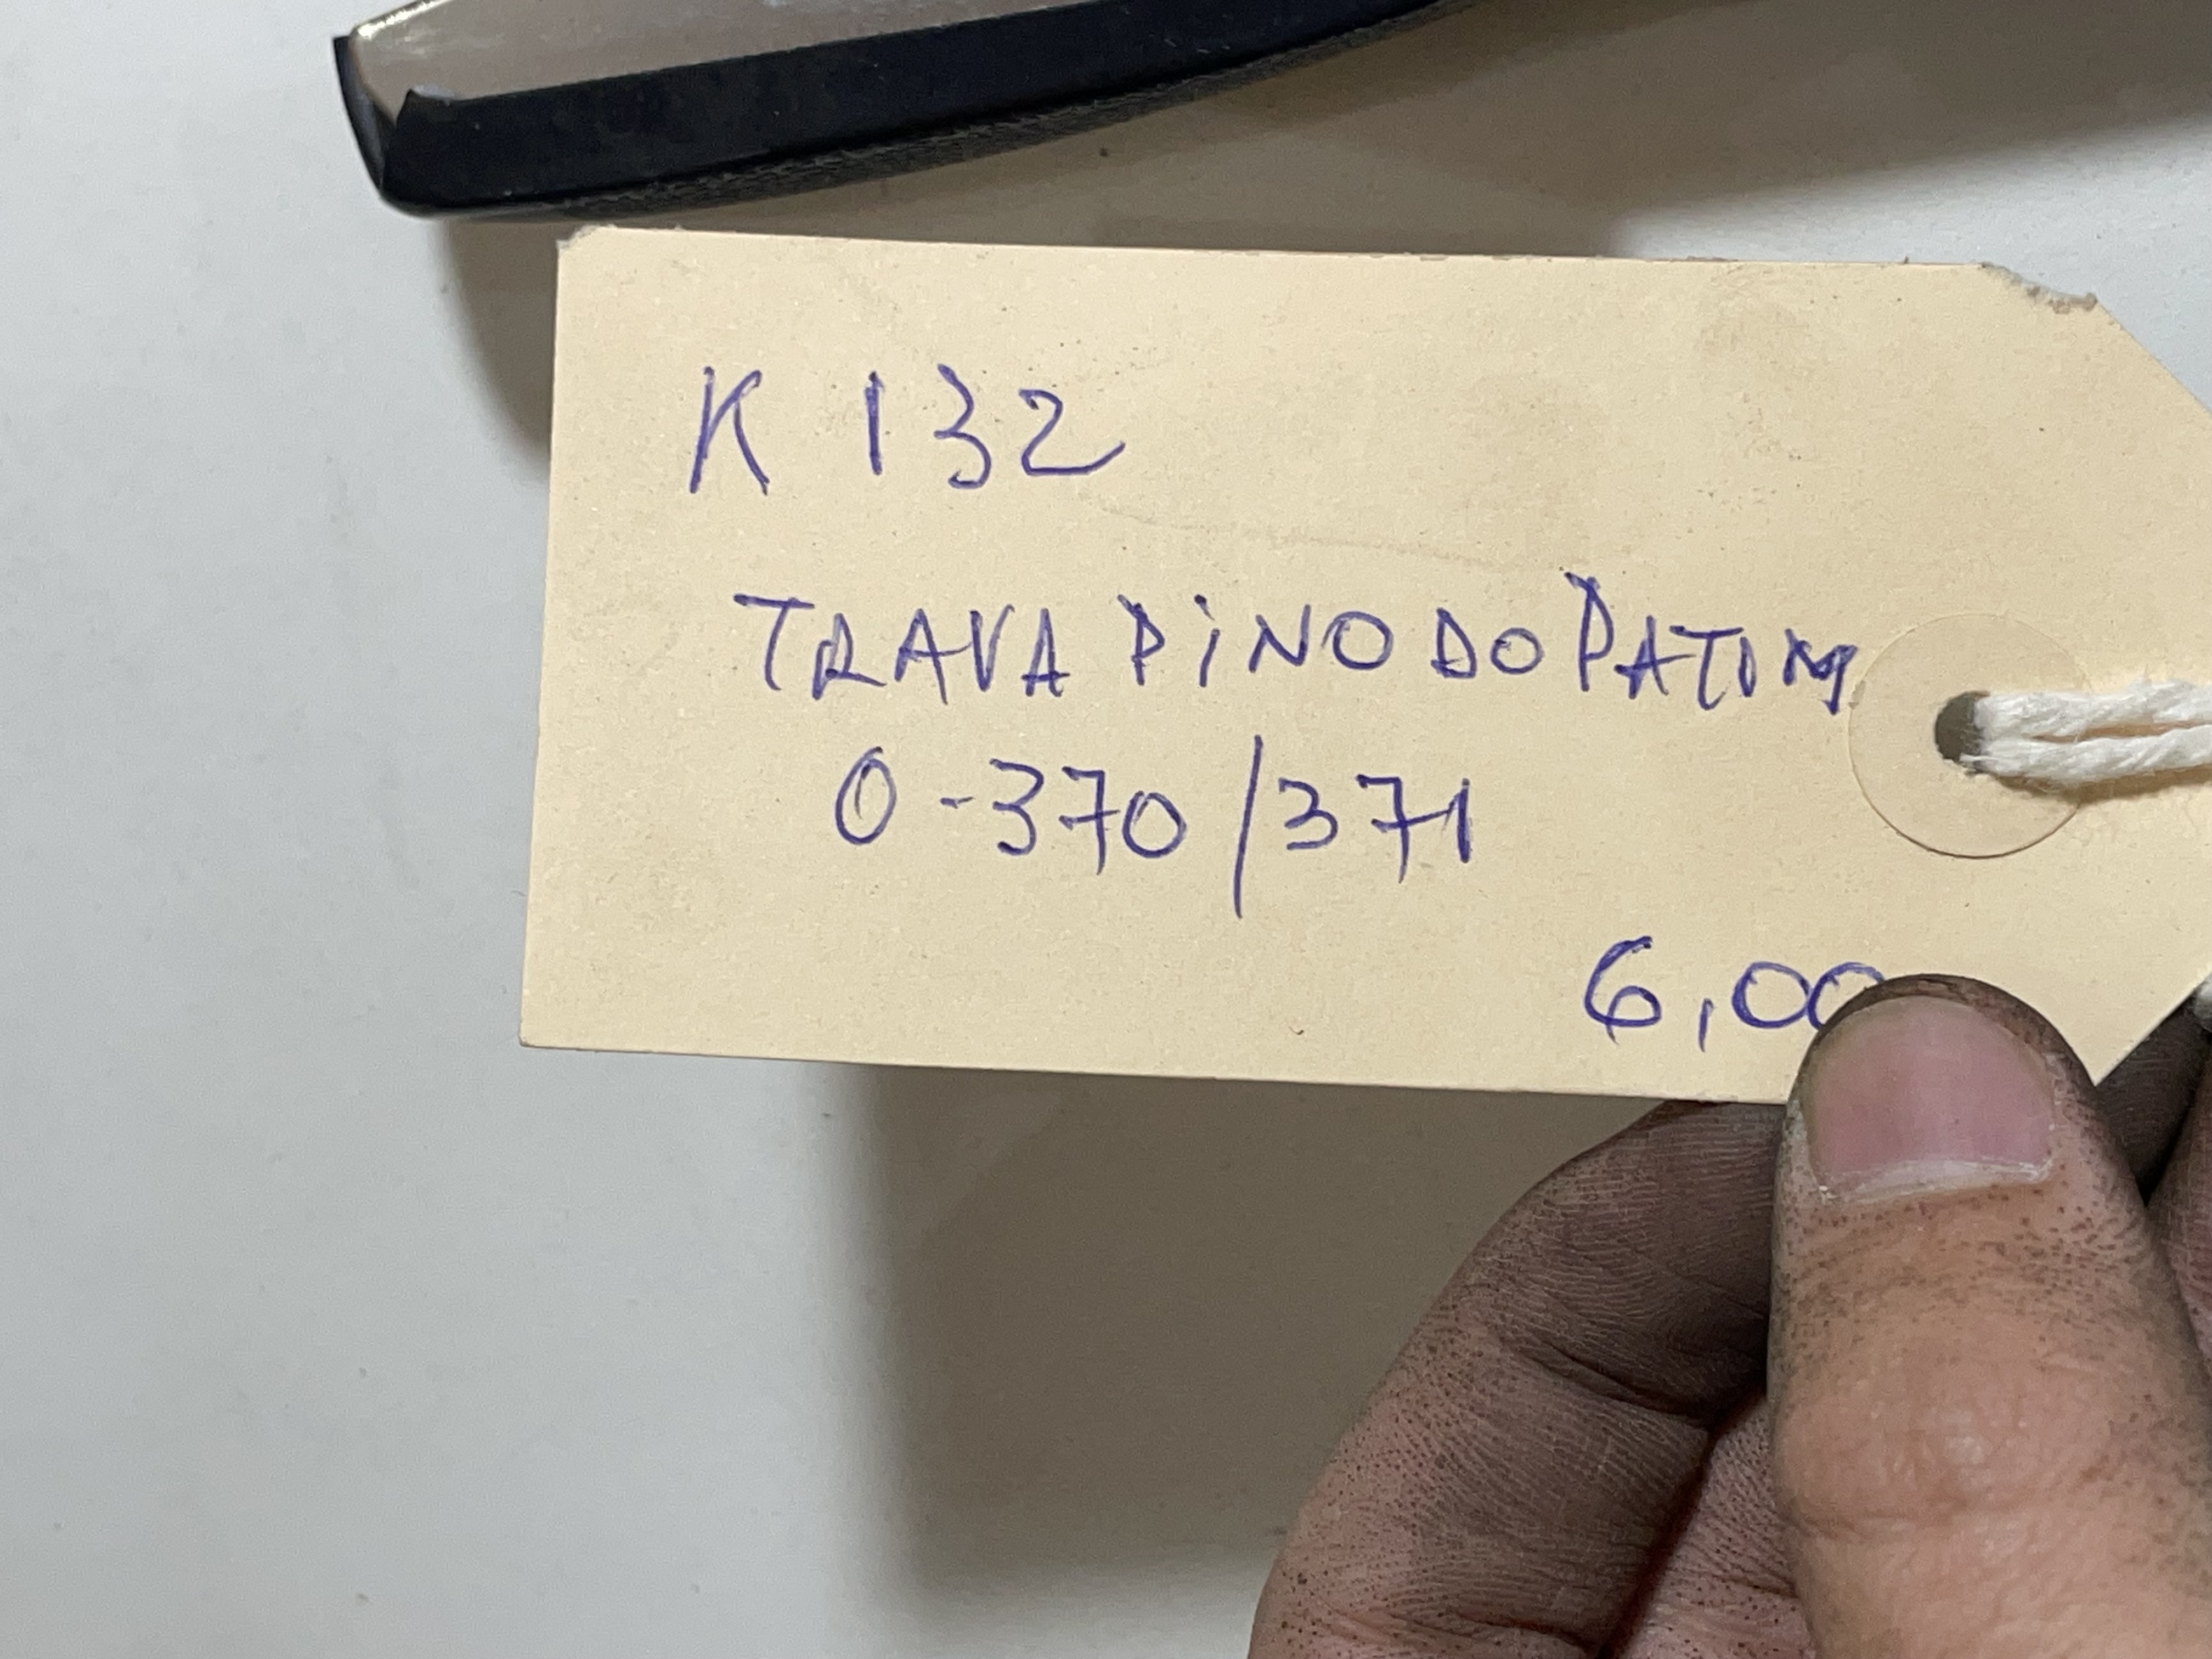 K 132
TRAVA PiNO DO PATIM
0-370/371
6,00